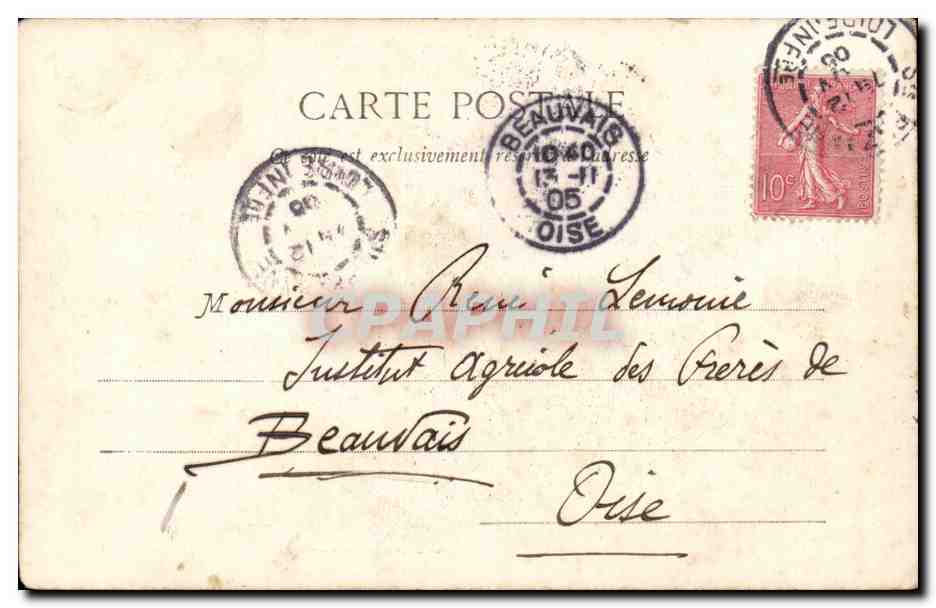 CARTE POSTALE
Ce côté est exclusivement réservé à l'adresse
BEAUVAIS
10 40
13 -11
05
OISE
LOIRE INFRE
10c
Monsieur René Lemonie
Institut Agricole des Frères de
Beauvais
Oise
CPAPHIL